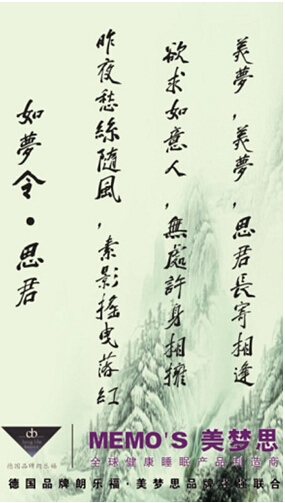 如夢令·思君
昨夜愁絲隨風,素影搖曳落紅
欲求如意人,無處許身相擁
美夢,美夢,思君長寄相逢
德国品牌朗乐福
MEMO'S 美梦思
全球健康睡眠产品制造商
德国品牌朗乐福·美梦思品牌联合